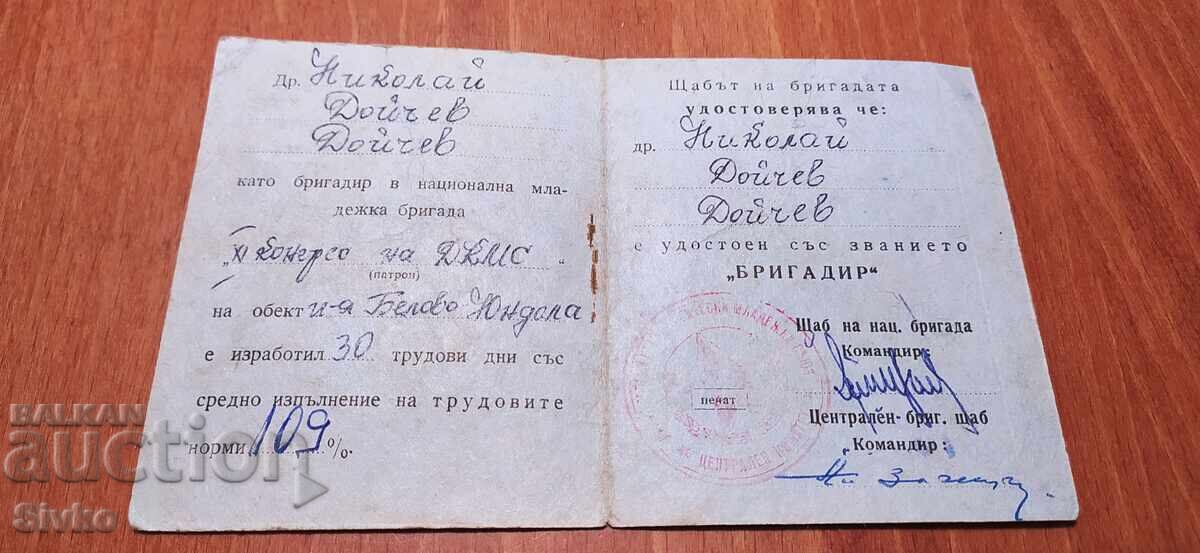 Др. Николай
Дойчев
Дойчев
като бригадир в национална мла-
дежка бригада
„XI Конгрес на ДКМС“
(патрон)
на обект Белово Юндола
е изработил 30 трудови дни със
средно изпълнение на трудовите
норми 109 %.
Щабът на бригадата
удостоверява че:
др. Николай
Дойчев
Дойчев
е удостоен със званието
„БРИГАДИР“
Щаб на нац. бригада
Командир:
печат
Централен бриг. щаб
„Командир:
ЦЕНТРАЛЕН
BALKAN
auction
Sivko